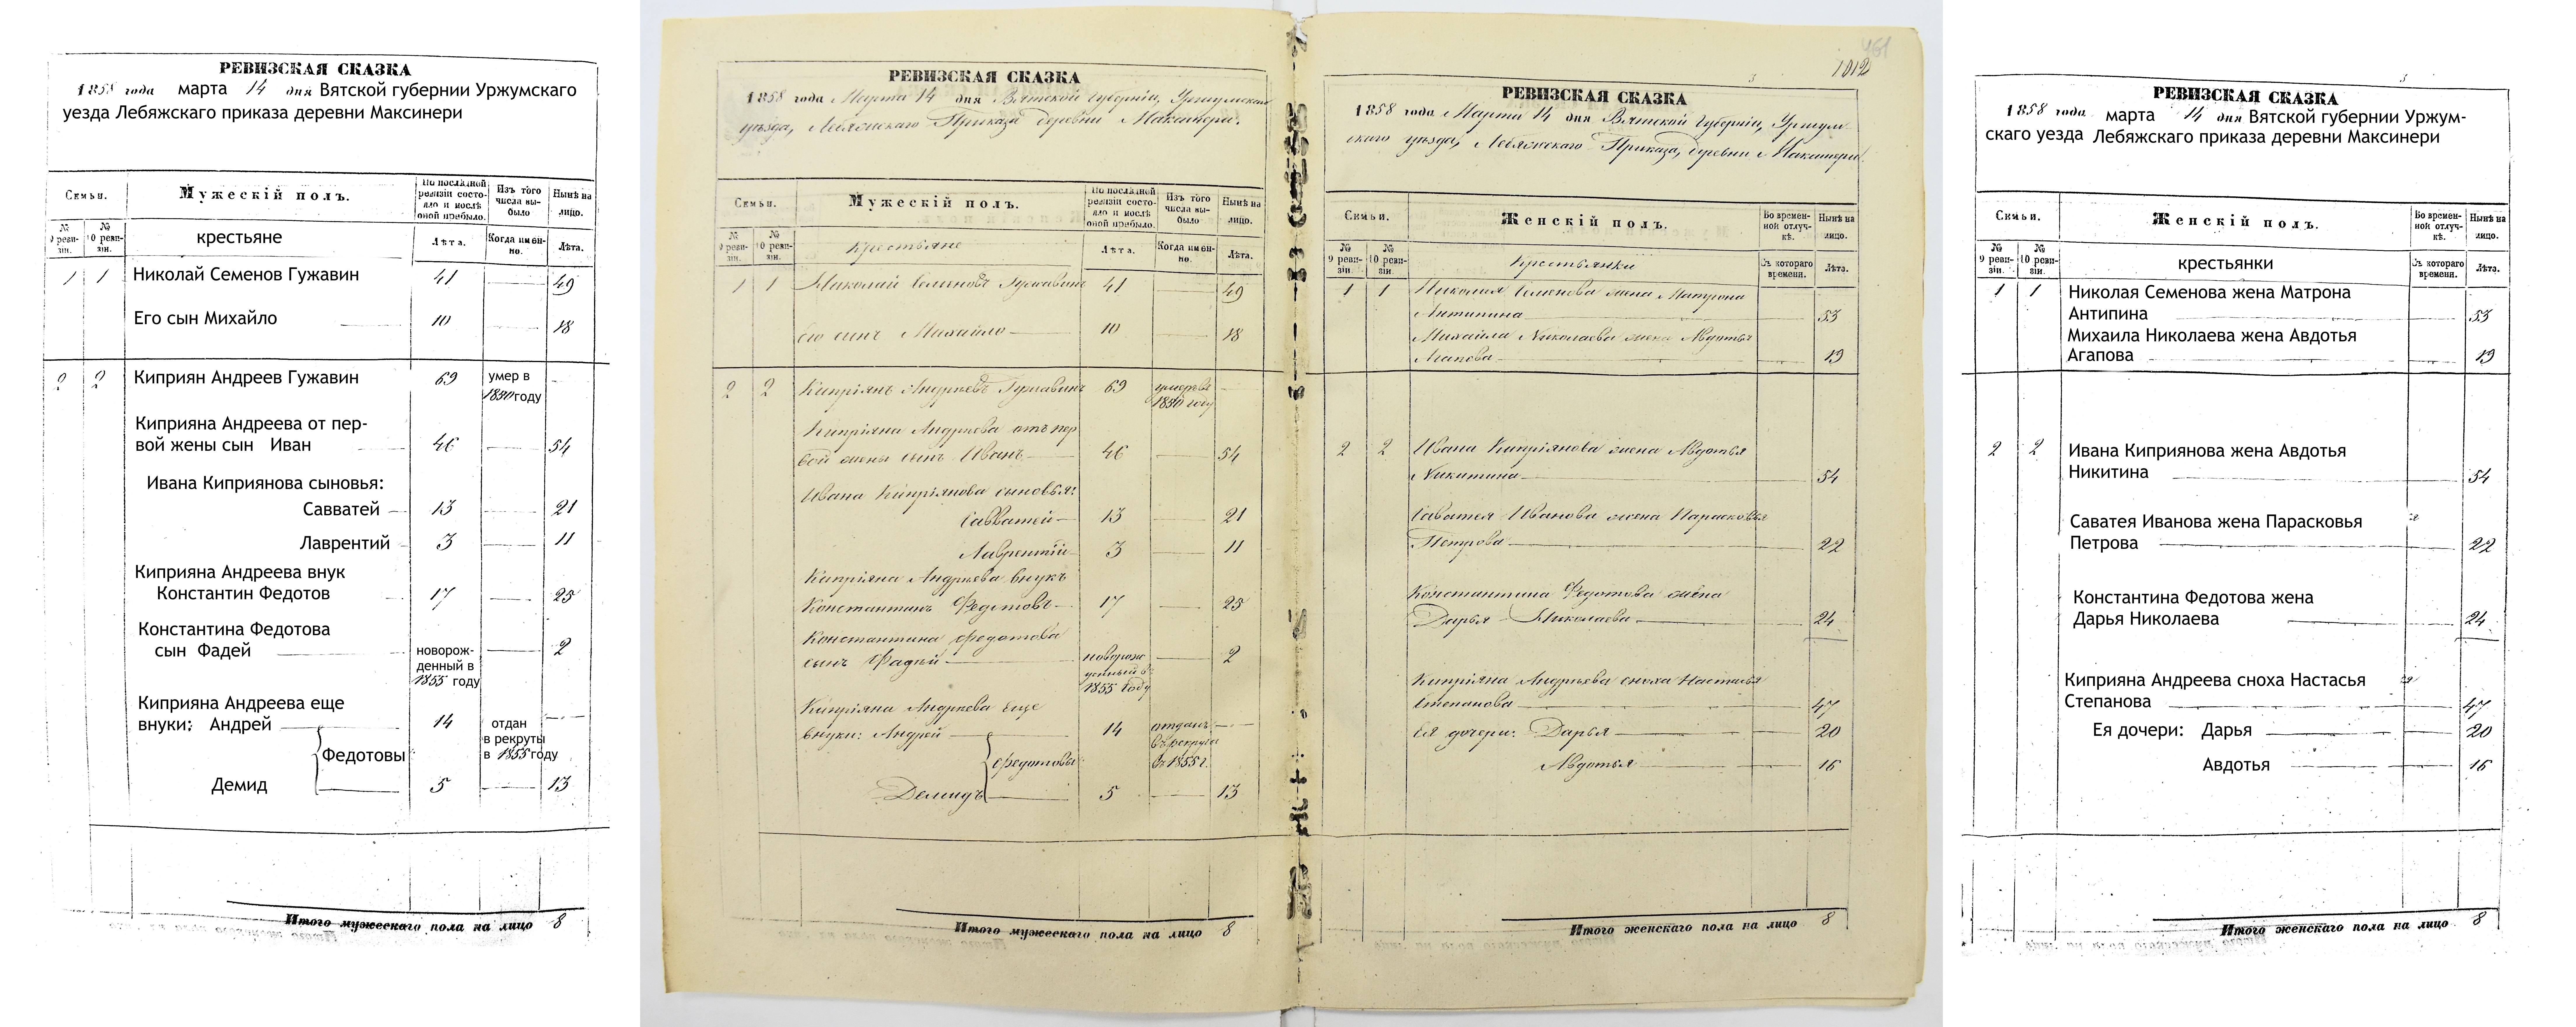 РЕВИЗСКАЯ СКАЗКА
1858 года марта 14 дня Вятской губернии Уржумскаго
уезда Лебяжскаго приказа деревни Максинери
Семьи.
Мужескій полъ.
По послѣдней ревизіи состояло и послѣ оной прибыло.
Изъ того числа выбыло
Нынѣ на лицо.
№ 9 ревизіи.
№ 10 ревизіи.
крестьяне
Лѣта.
Когда именно.
Лѣта.
1 1 Николай Семенов Гужавин 41 49
Его сын Михайло 10 18
2 2 Киприян Андреев Гужавин 69 умер в
1850 году
Киприяна Андреева от пер-
вой жены сын Иван 46 54
Ивана Киприянова сыновья:
Савватей 13 21
Лаврентий 3 11
Киприяна Андреева внук
Константин Федотов 17 25
Константина Федотова
сын Фадей новорож- 2
денный в
1855 году
Киприяна Андреева еще
внуки: Андрей 14 отдан
в рекруты
Федотовы в 1855 году
Демид 5 13
Итого мужескаго пола на лицо 8
461
1012
РЕВИЗСКАЯ СКАЗКА
1858 года Марта 14 дня Вятской Губерніи, Уржумскаго
уѣзда, Лебяжскаго Приказа деревни Максинери.
Семьи.
Мужескій полъ.
По послѣдней ревизіи состояло и послѣ оной прибыло.
Изъ того числа выбыло
Нынѣ на лицо.
№ 9 ревизіи.
№ 10 ревизіи.
Крестьяне
Лѣта.
Когда именно.
Лѣта.
1 1 Николай Семеновъ Гужавинъ 41 49
Его сынъ Михайло 10 18
2 2 Кипріянъ Андреевъ Гужавинъ 69 умеръ въ
1850 году
Кипріяна Андреева отъ пер
вой жены сынъ Иванъ 46 54
Ивана Кипріянова сыновья:
Савватей 13 21
Лаврентій 3 11
Кипріяна Андреева внукъ
Константинъ Федотовъ 17 25
Константина Федотова
сынъ Фадей новорож 2
денный въ
1855 году
Кипріяна Андреева еще
внуки: Андрей 14 отданъ
въ рекруты
Федотовы въ 1855 г.
Демидъ 5 13
Итого мужескаго пола на лицо 8
РЕВИЗСКАЯ СКАЗКА
1858 года Марта 14 дня Вятской Губерніи, Уржум
скаго уѣзда, Лебяжскаго Приказа, деревни Максинери.
Семьи.
Женскій полъ.
Во временной отлучкѣ.
Нынѣ на лицо.
№ 9 ревизіи.
№ 10 ревизіи.
Крестьянки
Съ котораго времени.
Лѣта.
1 1 Николая Семенова жена Матрона
Антипина 53
Михайла Николаева жена Авдотья
Агапова 19
2 2 Ивана Кипріянова жена Авдотья
Никитина 54
Саватея Иванова жена Парасковья
Петрова 22
Константина Федотова жена
Дарья Николаева 24
Кипріяна Андреева сноха Настасья
Степанова 47
Ея дочери: Дарья 20
Авдотья 16
Итого женскаго пола на лицо 8
РЕВИЗСКАЯ СКАЗКА
1858 года марта 14 дня Вятской губернии Уржум-
скаго уезда Лебяжскаго приказа деревни Максинери
Семьи.
Женскій полъ.
Во временной отлучкѣ.
Нынѣ на лицо.
№ 9 ревизіи.
№ 10 ревизіи.
крестьянки
Съ котораго времени.
Лѣта.
1 1 Николая Семенова жена Матрона
Антипина 53
Михаила Николаева жена Авдотья
Агапова 19
2 2 Ивана Киприянова жена Авдотья
Никитина 54
Саватея Иванова жена Парасковья
Петрова 22
Константина Федотова жена
Дарья Николаева 24
Киприяна Андреева сноха Настасья
Степанова 47
Ея дочери: Дарья 20
Авдотья 16
Итого женскаго пола на лицо 8